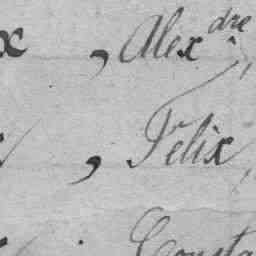 x , Alex^dre,
, Félix,
Consta